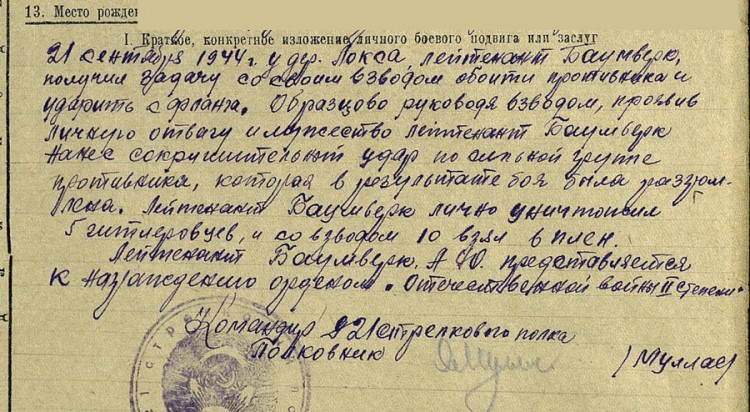 13. Место рожден
I. Краткое, конкретное изложение личного боевого подвига или заслуг
21 сентября 1944 г. у дер. Локса, лейтенант Баумверк,
получил задачу со своим взводом обойти противника и
ударить с фланга. Образцово руководя взводом, проявив
личную отвагу и мужество лейтенант Баумверк
нанес сокрушительный удар по сильной группе
противника, которая в результате боя была разгром-
лена. Лейтенант Баумверк лично уничтожил
5 гитлеровцев, и со взводом 10 взял в плен.
Лейтенант Баумверк А.Ю. представляется
к награждению орденом „Отечественной войны II степени“
Командир 921 стрелкового полка
Полковник (Муллас)